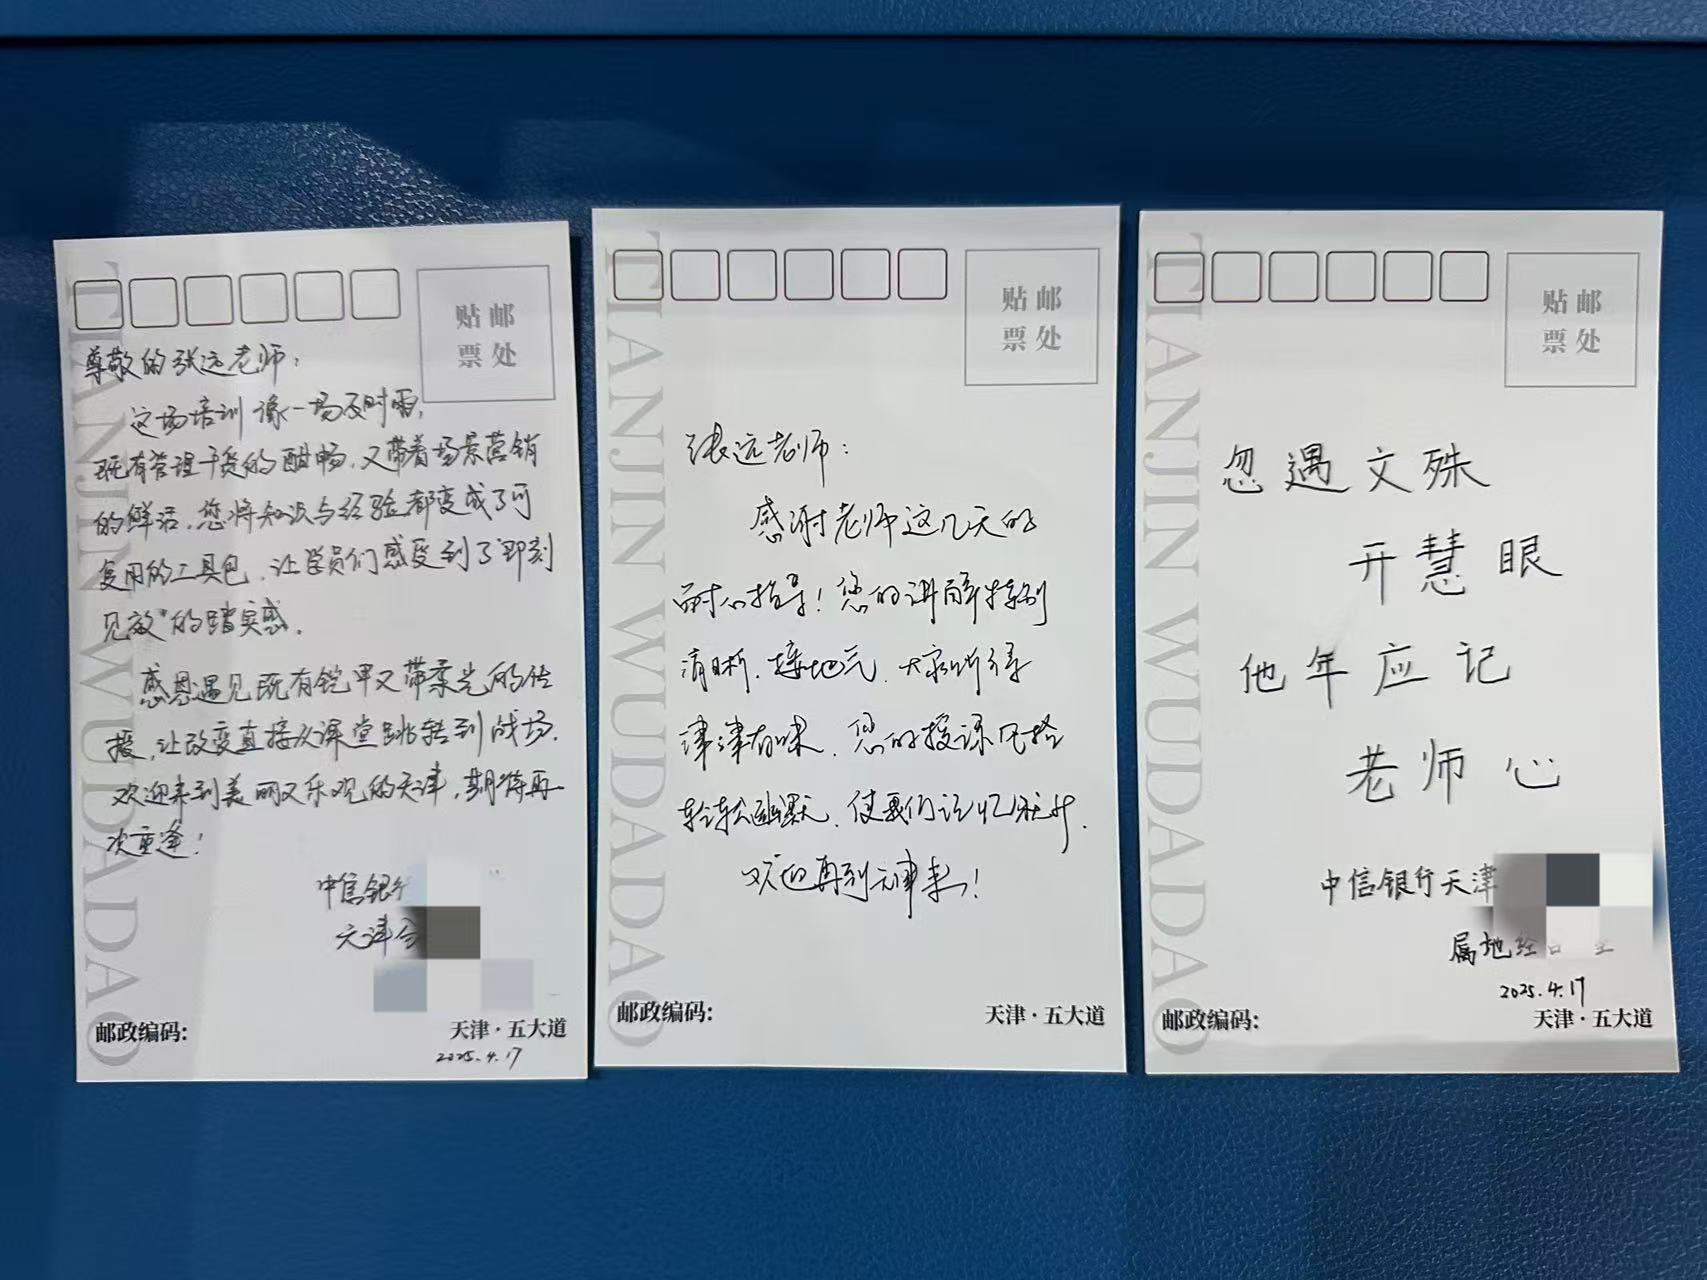 TIANJIN WUDADAO
贴邮
票处
尊敬的张远老师：
这场培训像一场及时雨，
既有管理干货的酣畅，又带着场景营销
的鲜活，您将知识与经验都变成了可
复用的工具包，让学员们感受到了“即刻
见效”的踏实感。
感恩遇见既有铠甲又带柔光的传
授，让改变直接从课堂跳转到战场，
欢迎来到美丽又乐观的天津，期待再
次重逢！
中信银行
天津分
邮政编码：
天津·五大道
2025.4.17
TIANJIN WUDADAO
贴邮
票处
张远老师：
感谢老师这几天的
耐心指导！您的讲解特别
清晰，接地气，大家听得
津津有味，您的授课风格
轻松幽默，使我们记忆犹新，
欢迎再到天津来！
邮政编码：
天津·五大道
TIANJIN WUDADAO
贴邮
票处
忽遇文殊
开慧眼
他年应记
老师心
中信银行天津
属地经
2025.4.17
邮政编码：
天津·五大道